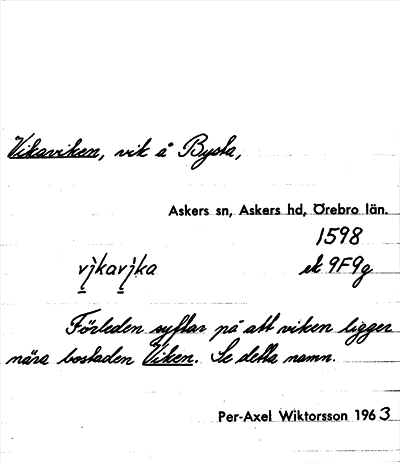 Vikaviken, vik å Bysta,
Askers sn, Askers hd, Örebro län.
1598
vi̯kavi̯ka ek 9F9g
Förleden syftar på att viken ligger
nära bostaden Viken. Se detta namn.
Per-Axel Wiktorsson 1963